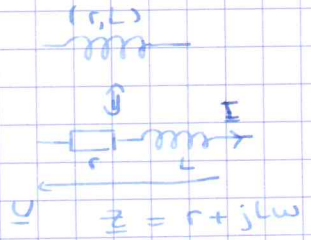 (r, L)
I
r L
U
z = r + jLω